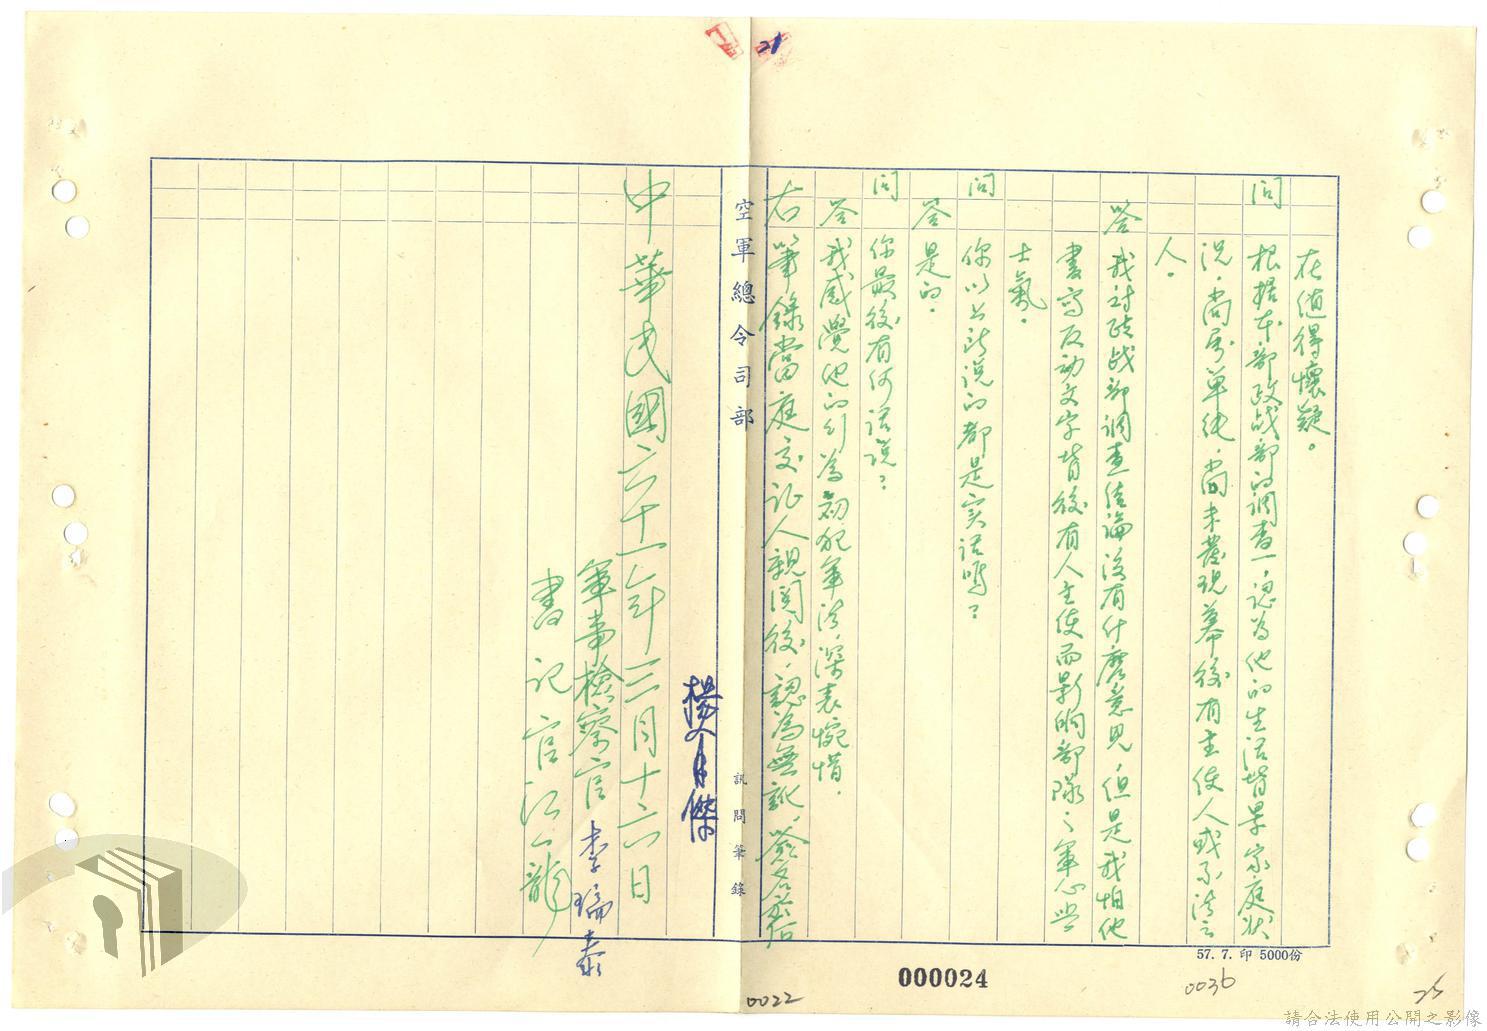 21
在值得懷疑。
問 根據本部政战部的調查,認為他的生活背景家庭狀
況,尚屬單純,尚未發現幕後有主使人或不法之
人。
答 我对政战部調查結論沒有什麼意見,但是我怕他
書寫反动文字背後有人主使而影响部隊之軍心與
士氣。
問 你以上所說的都是実话嗎?
答 是的。
問 你最後有何话説?
答 我感覺他的行為初犯軍法,深表惋惜。
右筆錄當庭交証人親閱後,認為無訛,簽名於后
空軍總令司部
訊問筆錄
楊人傑
中華民國六十一年三月十六日
軍事檢察官 李瑞泰
書記官 江一龍
57. 7. 印 5000份
000024
0022
0036
請合法使用公開之影像